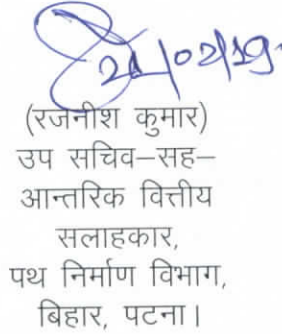 21/02/19
(रजनीश कुमार)
उप सचिव–सह–
आन्तरिक वित्तीय
सलाहकार,
पथ निर्माण विभाग,
बिहार, पटना।